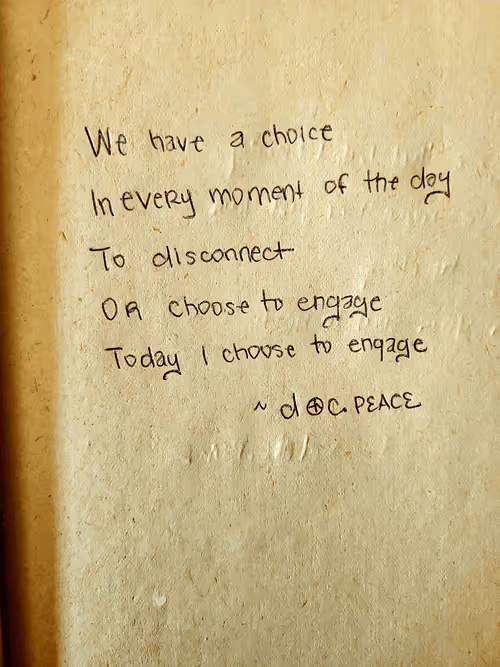 We have a choice
In every moment of the day
To disconnect
OR choose to engage
Today I choose to engage
~ d☮c. PEACE